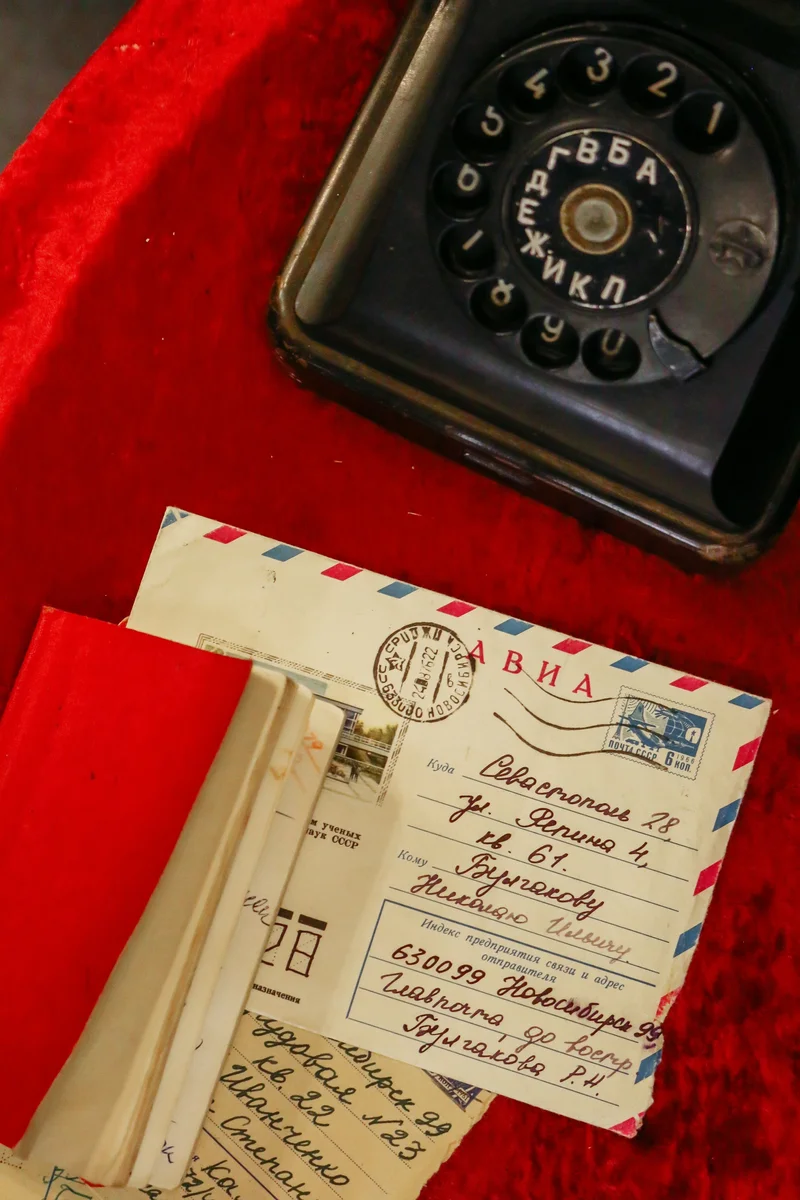 1
2
3
4
5
6
7
8
9
0
А
Б
В
Г
Д
Е
Ж
И
К
Л
АВИА
ПОЧТА СССР
1966
6 КОП.
НОВОСИБИРСК
Куда Севастополь 28,
ул. Репина 4,
кв. 61.
Кому Булгакову
Николаю Ильичу
Индекс предприятия связи и адрес
отправителя
630099 Новосибирск 99
Главпочта, до востр
Булгакова Р.Н.
м ученых
наук СССР
28
назначения
ибирск 99
удовая N23
кв. 22
Иванченко
Степан